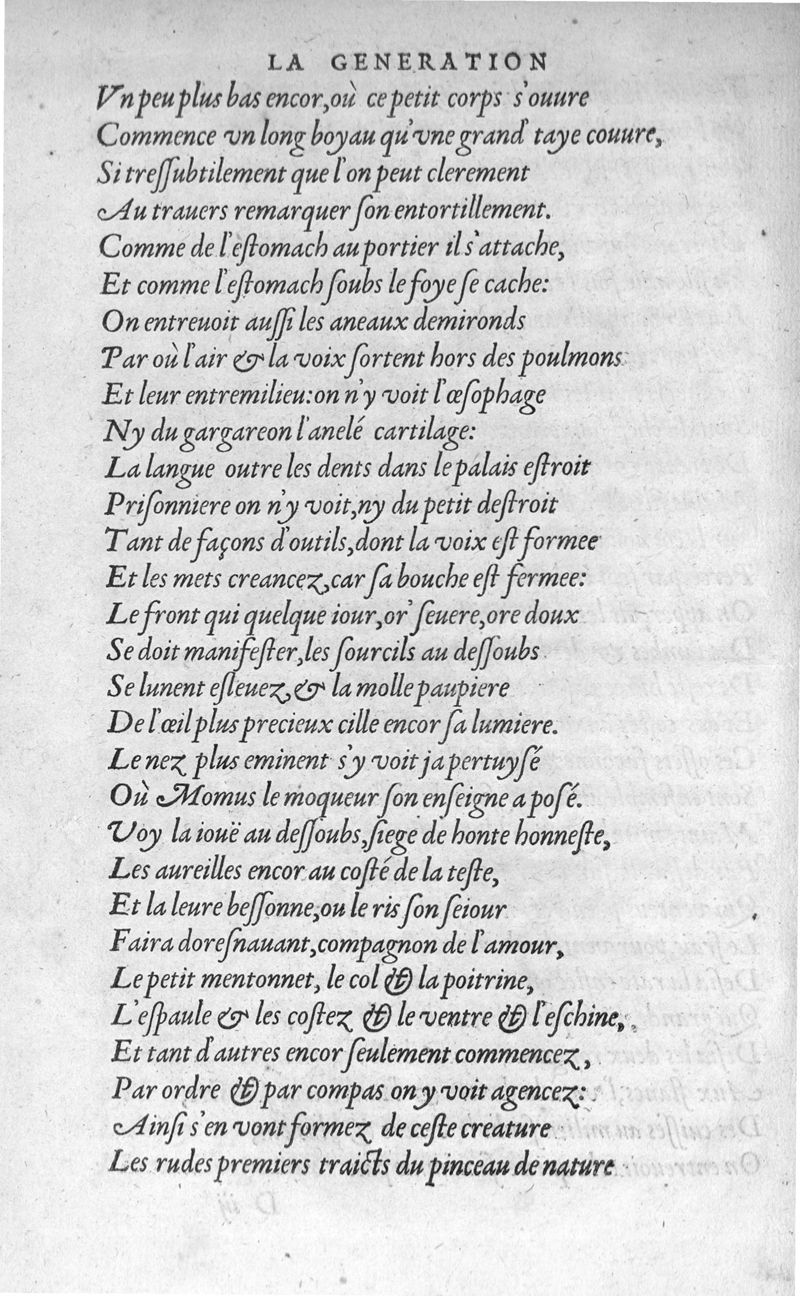 LA GENERATION
Vn peu plus bas encor, où ce petit corps s'ouure
Commence vn long boyau qu'vne grand' taye couure,
Si treſſubtilement que l'on peut clerement
Au trauers remarquer ſon entortillement.
Comme de l'eſtomach au portier il s'attache,
Et comme l'eſtomach ſoubs le foye ſe cache:
On entreuoit auſſi les aneaux demironds
Par où l'air & la voix ſortent hors des poulmons
Et leur entremilieu: on n'y voit l'œſophage
Ny du gargareon l'anelé cartilage:
La langue outre les dents dans le palais eſtroit
Priſonniere on n'y voit, ny du petit deſtroit
Tant de façons d'outils, dont la voix eſt formee
Et les mets creancez, car ſa bouche eſt fermee:
Le front qui quelque iour, or' ſeuere, ore doux
Se doit manifeſter, les ſourcils au deſſoubs
Se lunent eſleuez, & la molle paupiere
De l'œil plus precieux cille encor ſa lumiere.
Le nez plus eminent s'y voit ja pertuyſé
Où Momus le moqueur ſon enſeigne a poſé.
Voy la iouë au deſſoubs, ſiege de honte honneſte,
Les aureilles encor au coſté de la teſte,
Et la leure beſſonne, ou le ris ſon ſeiour
Faira doreſnauant, compagnon de l'amour,
Le petit mentonnet, le col & la poitrine,
L'eſpaule & les coſtez & le ventre & l'eſchine,
Et tant d'autres encor ſeulement commencez,
Par ordre & par compas on y voit agencez:
Ainſi s'en vont formez de ceſte creature
Les rudes premiers traicts du pinceau de nature